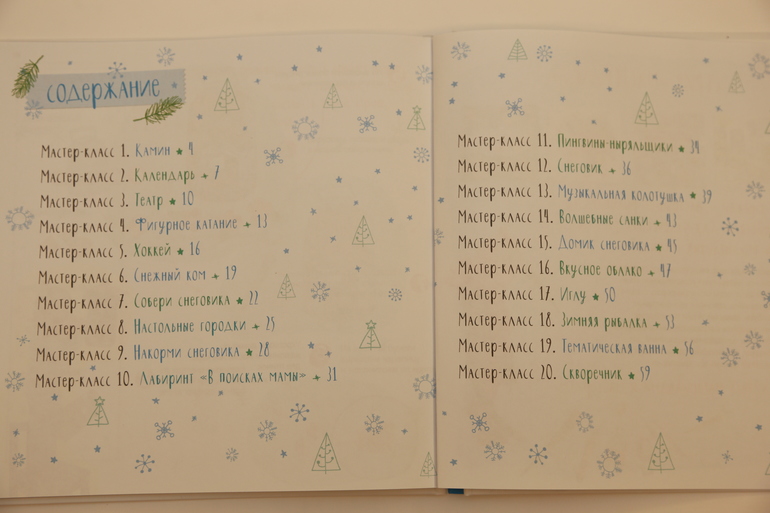 содержание
Мастер-класс 1. Камин ★ 4
Мастер-класс 2. Календарь + 7
Мастер-класс 3. Театр ★ 10
Мастер-класс 4. Фигурное катание + 13
Мастер-класс 5. Хоккей ★ 16
Мастер-класс 6. Снежный ком + 19
Мастер-класс 7. Собери снеговика ★ 22
Мастер-класс 8. Настольные городки + 25
Мастер-класс 9. Накорми снеговика ★ 28
Мастер-класс 10. Лабиринт «В поисках мамы» + 31
Мастер-класс 11. Пингвины-ныряльщики ★ 34
Мастер-класс 12. Снеговик + 36
Мастер-класс 13. Музыкальная колотушка ★ 39
Мастер-класс 14. Волшебные санки + 43
Мастер-класс 15. Домик снеговика ★ 45
Мастер-класс 16. Вкусное облако + 47
Мастер-класс 17. Иглу ★ 50
Мастер-класс 18. Зимняя рыбалка + 53
Мастер-класс 19. Тематическая ванна ★ 56
Мастер-класс 20. Скворечник ★ 59